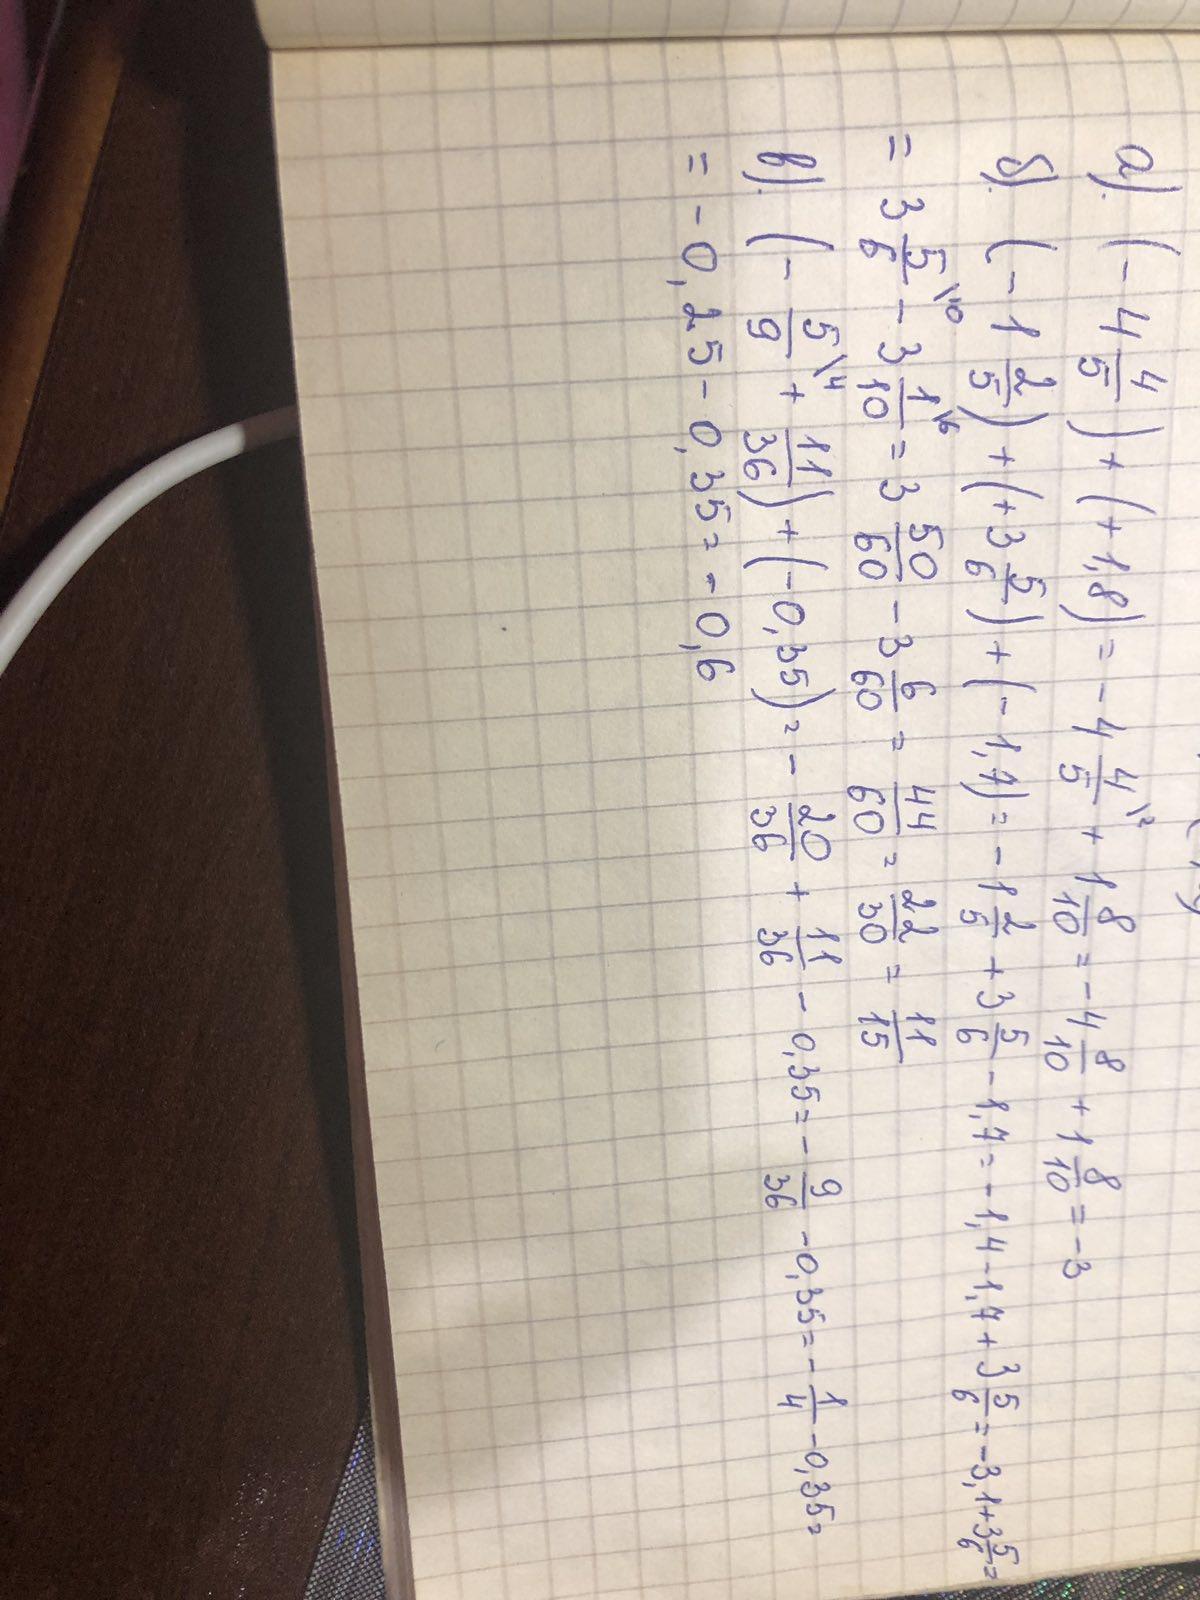 а). (-4 4/5) + (+1,8) = -4 4/5\2 + 1 8/10 = -4 8/10 + 1 8/10 = -3
б). (-1 2/5) + (+3 5/6) + (-1,7) = -1 2/5 + 3 5/6 - 1,7 = -1,4 - 1,7 + 3 5/6 = -3,1 + 3 5/6 =
= 3 5/6\10 - 3 1/10\6 = 3 50/60 - 3 6/60 = 44/60 = 22/30 = 11/15
в). (-5/9\4 + 11/36) + (-0,35) = -20/36 + 11/36 - 0,35 = -9/36 - 0,35 = -1/4 - 0,35 =
= -0,25 - 0,35 = -0,6